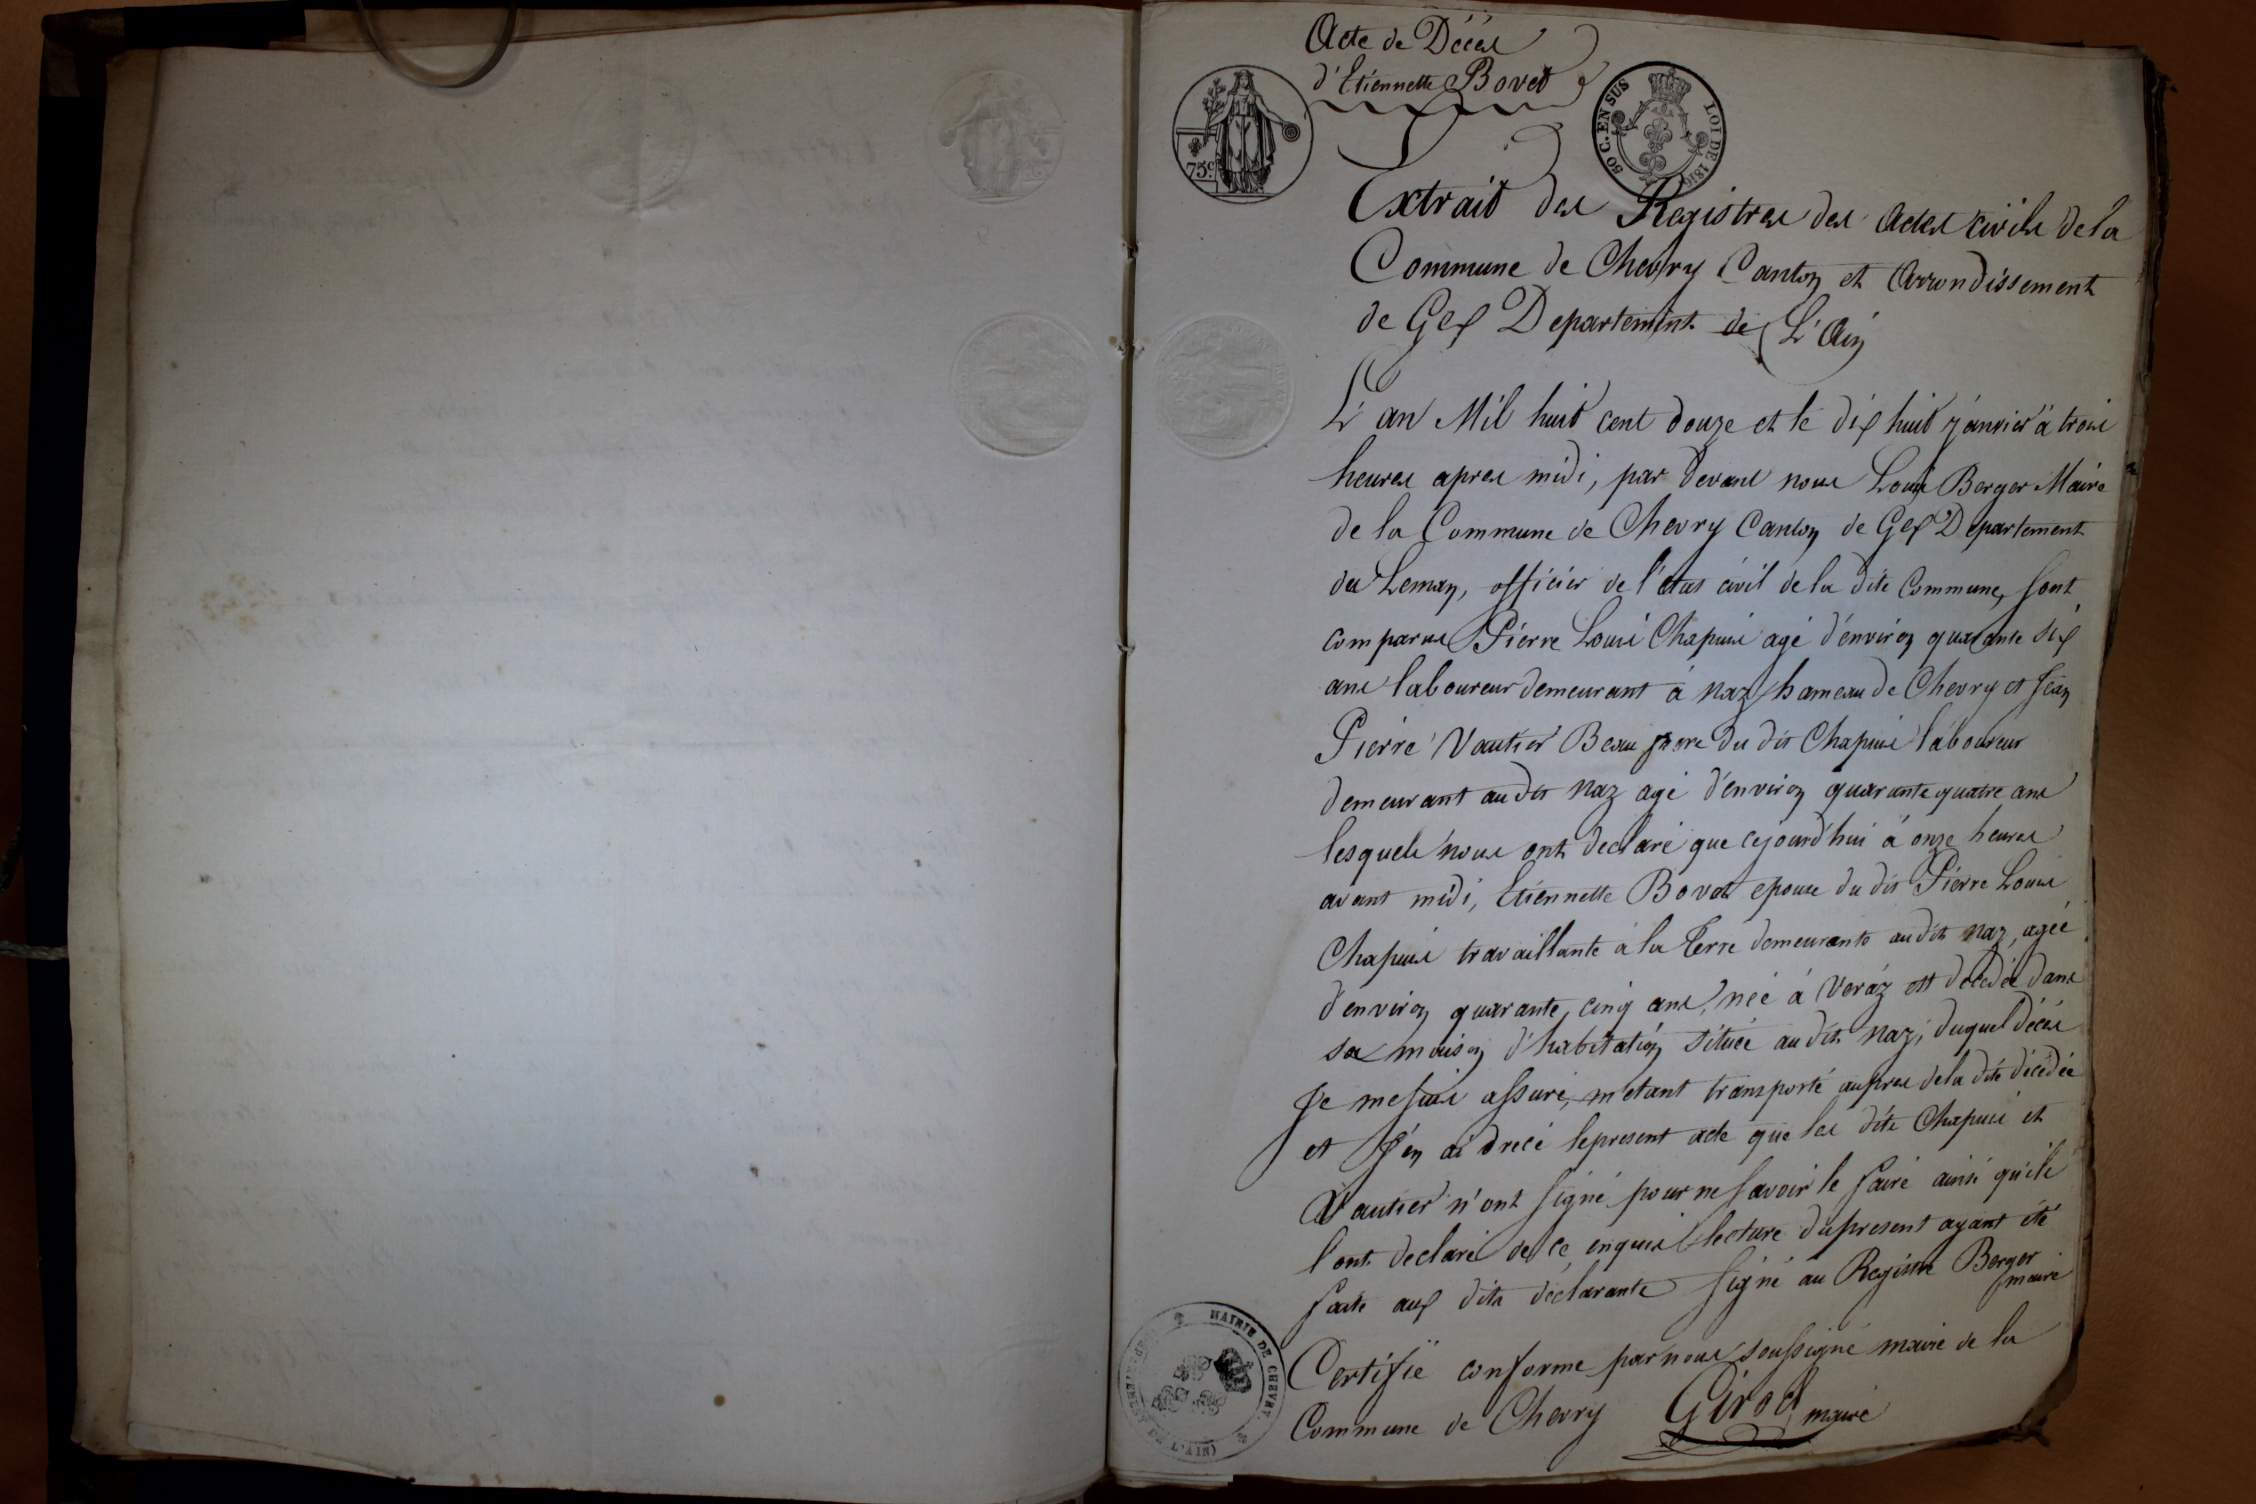 Acte de Décés
d'Etiennette Bovet
75c.
50 C. EN SUS
LOI DE 1816
Extrait des Registres des Actes civils de la
Commune de Chevry Canton et Arrondissement
de Gex Departement de L'Ain
L'an Mil huit cent douze et le dix huit janvier à trois
heures apres midi, par devant nous Louis Berger Maire
de la Commune de Chevry Canton de Gex Departement
du Leman, officier de l'état civil de la dite Commune, sont
comparus Pierre Louis Chapuis agé d'environ quarante six
ans laboureur demeurant à Naz hameau de Chevry et Jean
Pierre Vautier Beau frere du dit Chapuis laboureur
demeurant au dit Naz agé d'environ quarante quatre ans
lesquels nous ont declaré que cejourd'hui à onze heures
avant midi, Etiennette Bovet epouse du dit Pierre Louis
Chapuis travaillante à la Terre demeurante au dit Naz, agée
d'environ quarante cinq ans, née à Veráz est décédée dans
sa maison d'habitation située au dit Naz, duquel décés
Je me suis assuré, m'etant transporté aupres de la dite décédée
et J'en ai drecé le present acte que les dits Chapuis et
Vautier n'ont signé pour ne savoir le faire ainsi qu'ils
l'ont declaré de ce enquis lecture du present ayant été
faite aux dits déclarants signé au Registre Berger
maire
Certifié conforme par nous soussigné maire de la
Commune de Chevry Girod maire
MAIRIE DE CHEVRY
(AIN)